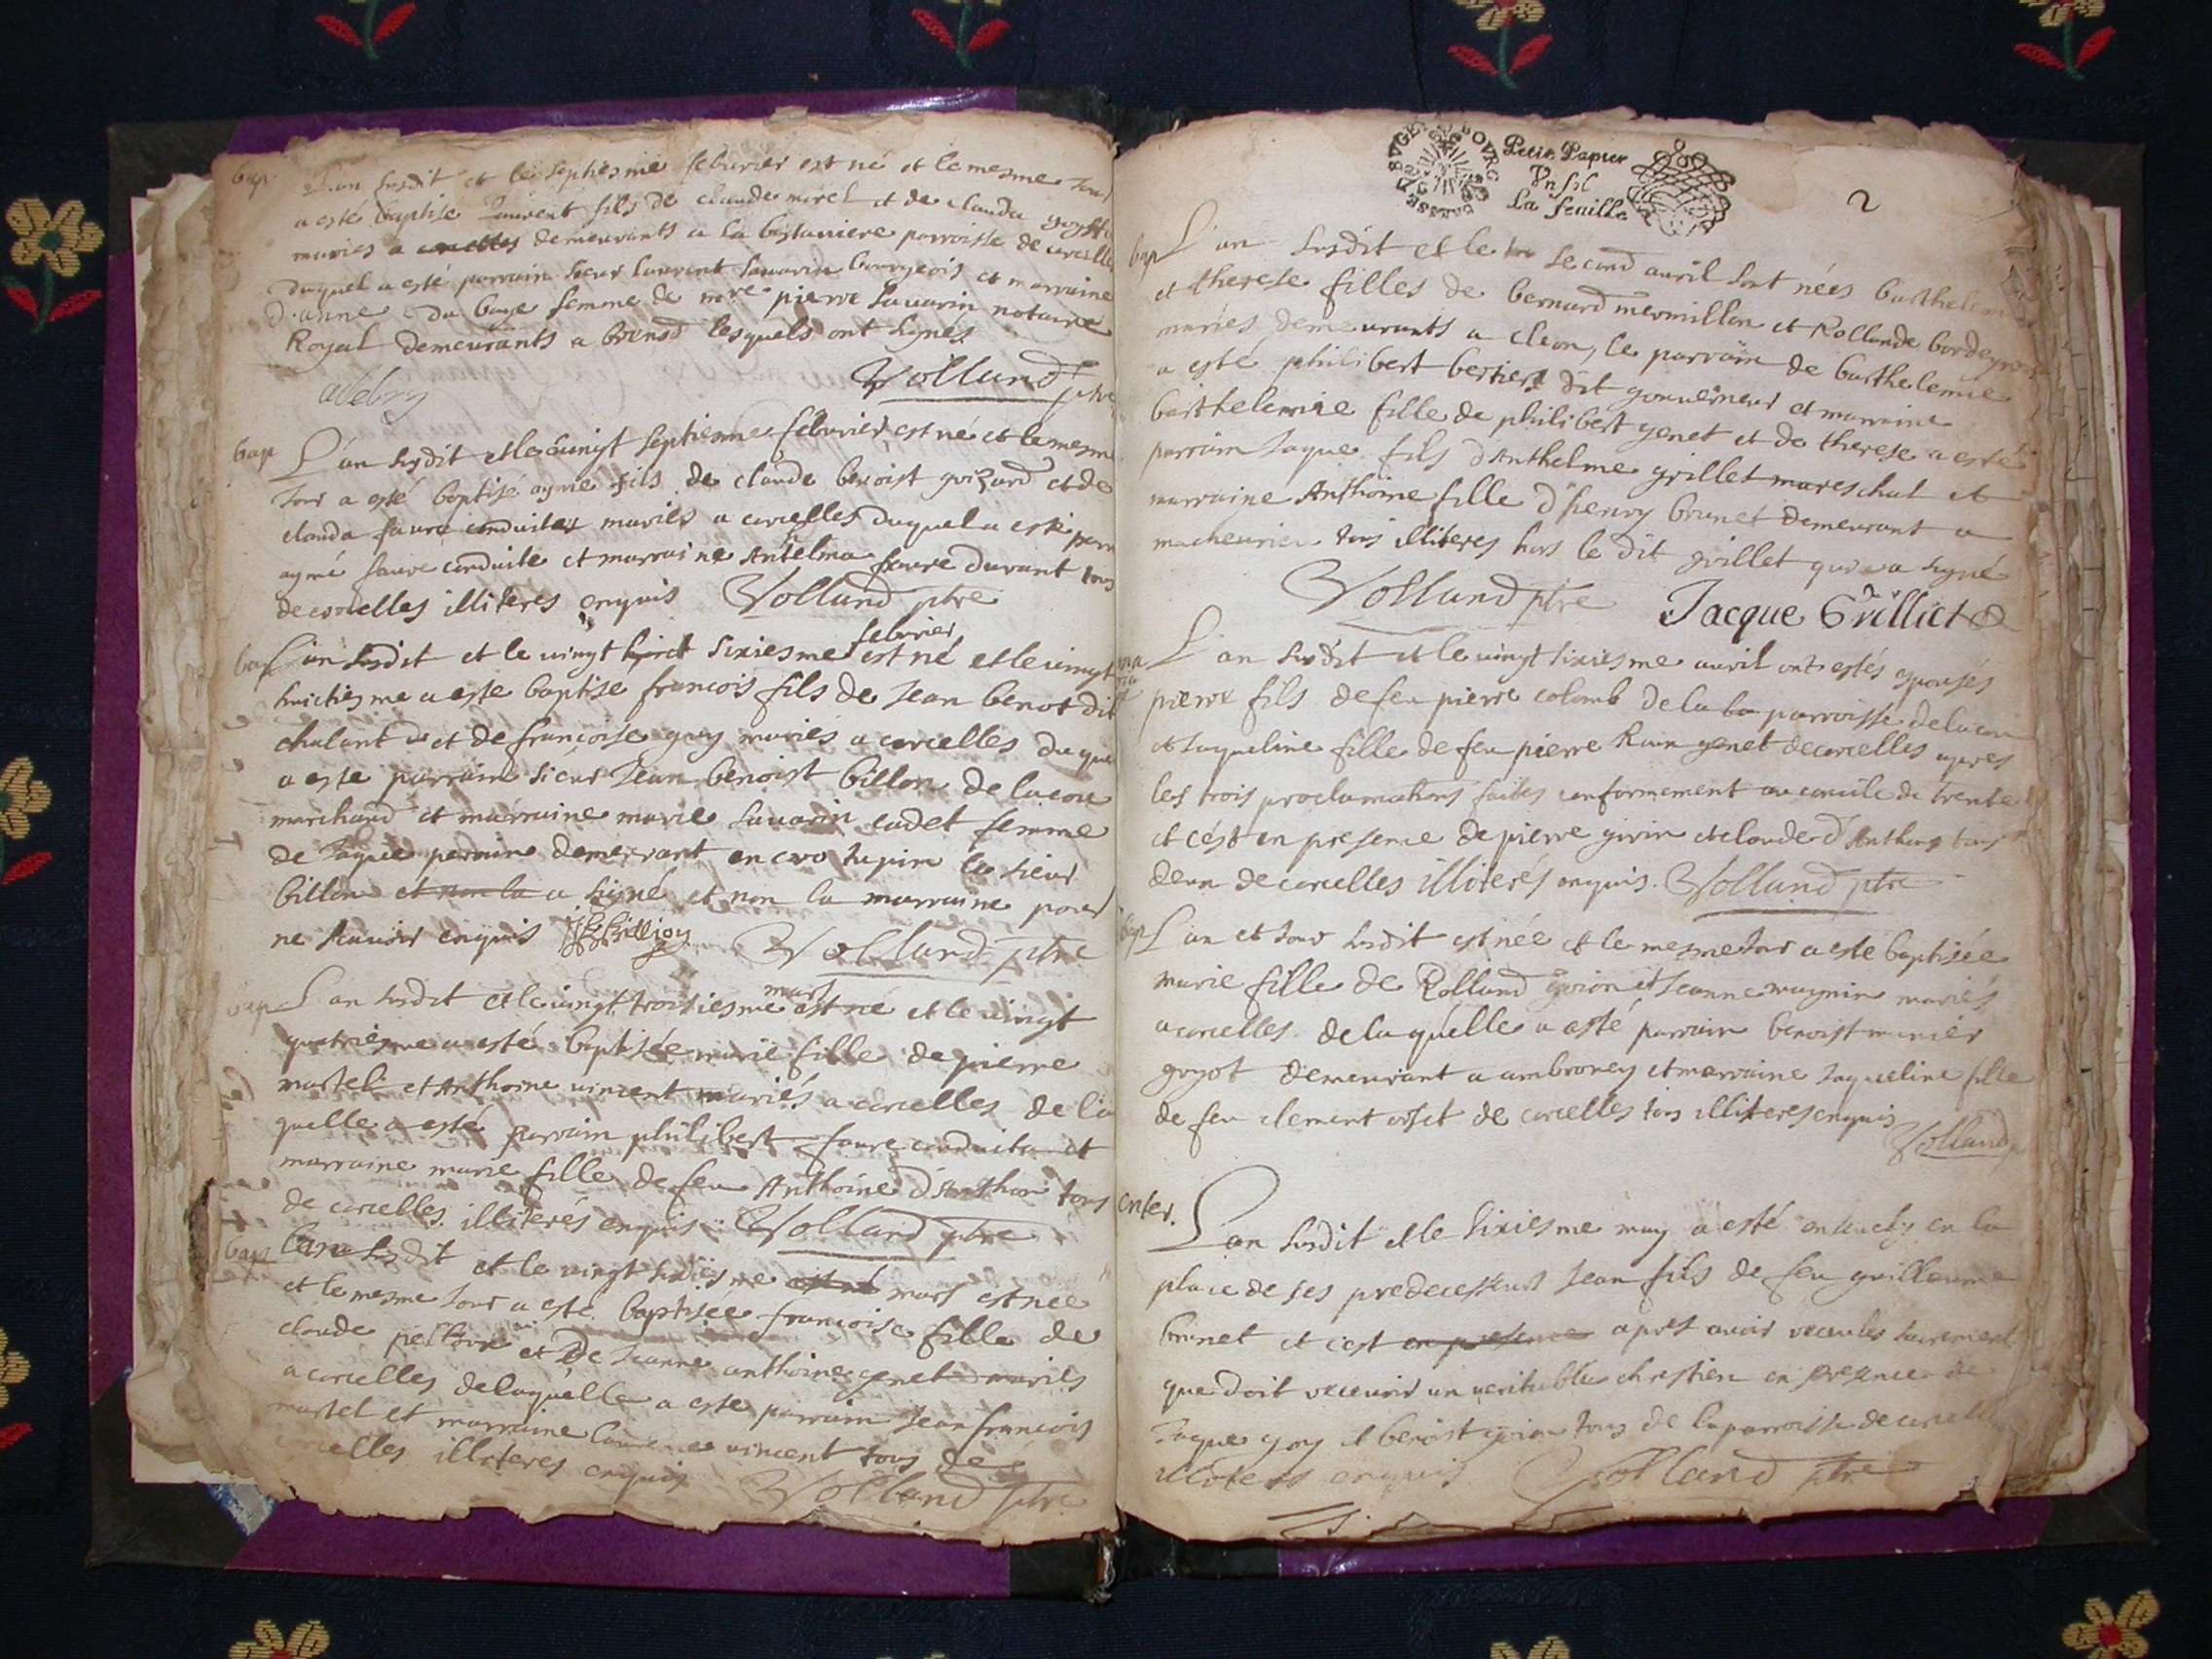 bap
L'an susdit et le septiesme febvrier est né et le mesme jour
a esté baptise Laurent fils de claude morel et de clauda
mariés a demeurants a la parroisse de corcelles
duquel a esté parrain sieur laurent sauarin bourgeois et marraine
d'anne du baye femme de pierre sauarin notaire
Royal demeurants a lesquels ont signés
Vollland ptre
bap
L'an susdit et le vingt septiesme febvrier est né et le mesme
jour a esté baptisé aymé fils de claude benoist guizard et de
clauda faure conduite mariés a corcelles duquel a esté parr
aymé faure conduite et marraine Antelma faure durant tous
de corcelles illiteres enquis Volland ptre
bap
L'an susdit et le vingt sixiesme febvrier est né et le vingt
huictiesme a este baptisé francois fils de Jean benot dit
chalant et de francoise guy mariés a corcelles duquel
a este parrain sieur Jean benoist billon de
marchand et marraine marie sauarin cadet femme
de Jaque demeurant en le sieur
billon et non la a signé et non la marraine pour
ne scauoir enquis Volland ptre
bap
L'an susdit et le vingt troisiesme mars est né et le vingt
quatriesme a esté baptisée marie fille de pierre
martel et Anthoine vincent mariés a corcelles de la
quelle a esté parrain philibert faure conduite et
marraine marie fille de feu Anthoine d'Anthon tous
de corcelles illiterés enquis Volland ptre
bap
L'an susdit et le vingt sixiesme mars est née
et le mesme jour a esté baptisée francoise fille de
claude et de Jeanne anthoine genet mariés
a corcelles de laquelle a este parrain Jean francois
martel et marraine vincent tous de
corcelles illiteres enquis Volland ptre
BVGEY BOVRG
Petit Papier
Vn sol
La feuille
2
bap
L'an susdit et le second auril sont nées barthelemie
et therese filles de bernard mermillon et Rollande
mariés demeurants a cleon, le parrain de barthelemie
a esté philibert bertier dit gouuerneur et marraine
barthelemie fille de philibert genet et de therese a esté
parrain Jaque fils d'Anthelme grillet mareschal et
marraine Anthoine fille d'henry brunet demeurant a
tous illiteres hors le dit grillet qui a signé
Volland ptre Jacque Grilliet
L'an susdit et le vingt sixiesme auril ont estés espousés
pierre fils de feu pierre colomb de la parroisse de
et Jaqueline fille de feu pierre genet de corcelles apres
les trois proclamations faites conformement au concile de trente
et c'est en presence de pierre girin et claude d'Anthon tous
deux de corcelles illiterés enquis. Volland ptre
bap
L'an et jour susdit est née et le mesme jour a esté baptisée
marie fille de Rolland et Jeanne magnin mariés
a corcelles de laquelle a esté parrain benoist
goyot demeurant a ambroney et marraine Jaqueline fille
de feu clement de corcelles tous illiteres enquis
Volland
enter.
L'an susdit et le sixiesme may a esté enseuely en la
place de ses predecesseurs Jean fils de feu guillaume
brunet et c'est en presence apres auoir receu les sacrements
que doit receuoir un ueritable chrestien en presence de
Jaque guy et benoist tous de la parroisse de corcelles
illiteres enquis Volland ptre